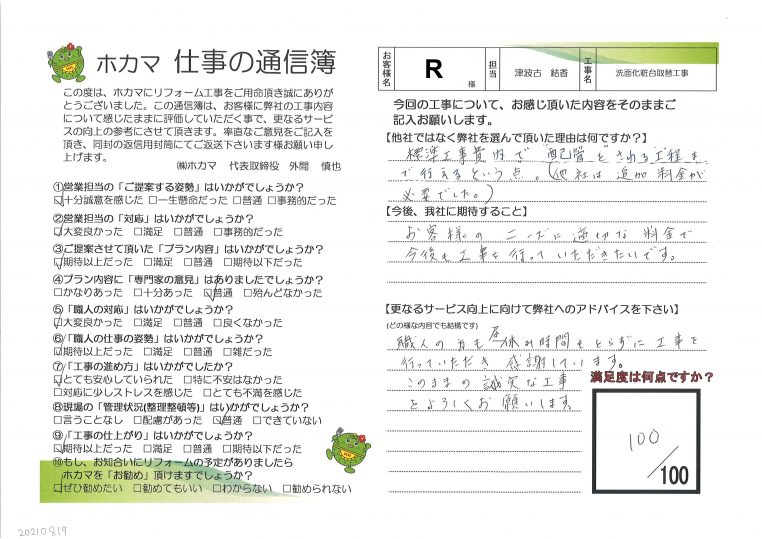 ホカマ 仕事の通信簿
この度は、ホカマにリフォーム工事をご用命頂き誠にありが
とうございました。この通信簿は、お客様に弊社の工事内容
について感じたままに評価していただく事で、更なるサービ
スの向上の参考にさせて頂きます。率直なご意見をご記入を
頂き、同封の返信用封筒にてご返送下さいます様お願い申し
上げます。
㈱ホカマ 代表取締役 外間 慎也
①営業担当の「ご提案する姿勢」はいかがでしょうか?
☑十分誠意を感じた □一生懸命だった □普通 □事務的だった
②営業担当の「対応」はいかがでしょうか?
☑大変良かった □満足 □普通 □事務的だった
③ご提案させて頂いた「プラン内容」はいかがでしょうか?
☑期待以上だった □満足 □普通 □期待以下だった
④プラン内容に「専門家の意見」はありましたでしょうか?
□かなりあった □十分あった ☑普通 □殆んどなかった
⑤「職人の対応」はいかがでしょうか?
☑大変良かった □満足 □普通 □良くなかった
⑥「職人の仕事の姿勢」はいかがでしょうか?
☑期待以上だった □満足 □普通 □雑だった
⑦「工事の進め方」はいかがでしたか?
☑とても安心していられた □特に不安はなかった
□対応に少しストレスを感じた □とても不満を感じた
⑧現場の「管理状況(整理整頓等)」はいかがでしょうか?
□言うことなし □配慮があった ☑普通 □できていない
⑨「工事の仕上がり」はいかがでしょうか?
☑期待以上だった □満足 □普通 □期待以下だった
⑩もし、お知合いにリフォームの予定がありましたら
ホカマを「お勧め」頂けますでしょうか?
☑ぜひ勧めたい □勧めてもいい □わからない □勧められない
20210819
お客様名 R 様 担当 津波古 結香 工事名 洗面化粧台取替工事
今回の工事について、お感じ頂いた内容をそのままご
記入お願いします。
【他社ではなく弊社を選んで頂いた理由は何ですか?】
標準工事費内で 配管をされる工程ま
で行えるという点。(他社は追加料金が
必要でした。)
【今後、我社に期待すること】
お客様のニーズに適切な料金で
今後も工事を行っていただきたいです。
【更なるサービス向上に向けて弊社へのアドバイスを下さい】
(どの様な内容でも結構です)
職人の方も昼休み時間もとらずに工事を
行っていただき 感謝しています。
このままの誠実な工事
をよろしくお願いします
満足度は何点ですか?
100
/100